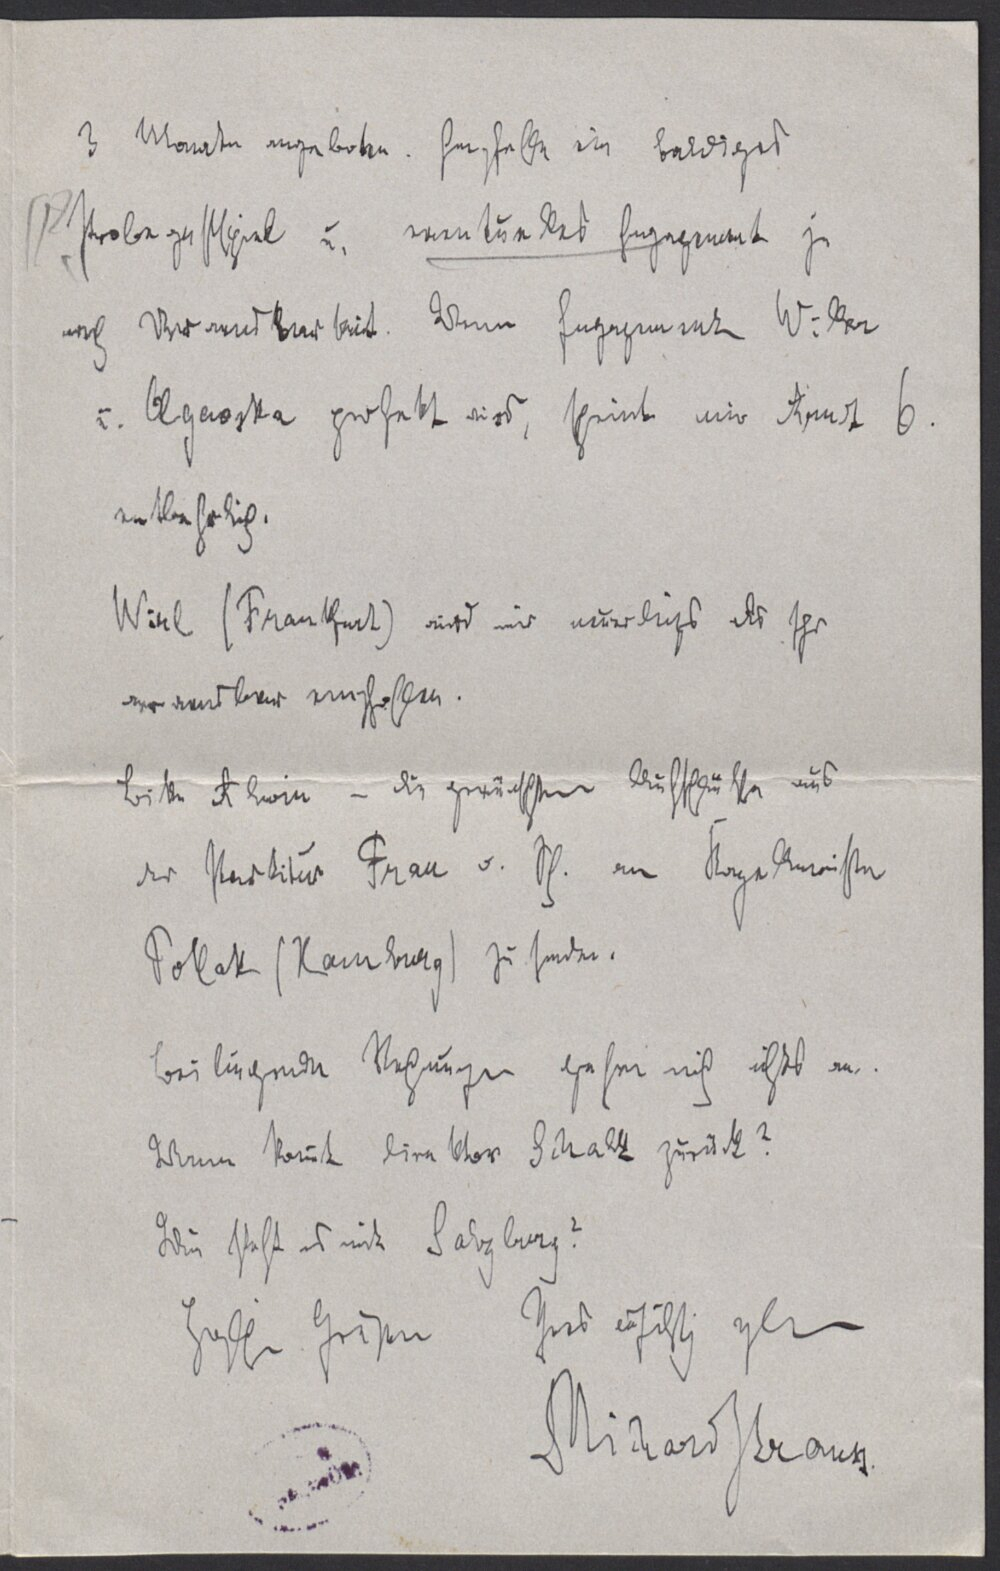 3 Monate angeboten. Empfehle ein baldiges
Probegastspiel u. eventuelles Engagement je
nach Verwendbarkeit. Wenn Engagement
u. perfekt wird, scheint mir
entbehrlich.
(Frankfurt) wird mir neuerdings als sehr
verwendbar empfohlen.
Bitte Alwin – die gewünschten aus
der Partitur Frau o. Sch. an Kapellmeister
Pollak (Hamburg) zu senden.
Beiliegende Rechnungen gehen mich nichts an.
Wann kommt Direktor Schalk zurück?
Wie steht es mit Salzburg?
Grüßen Ihres aufrichtig
Richard Strauss.